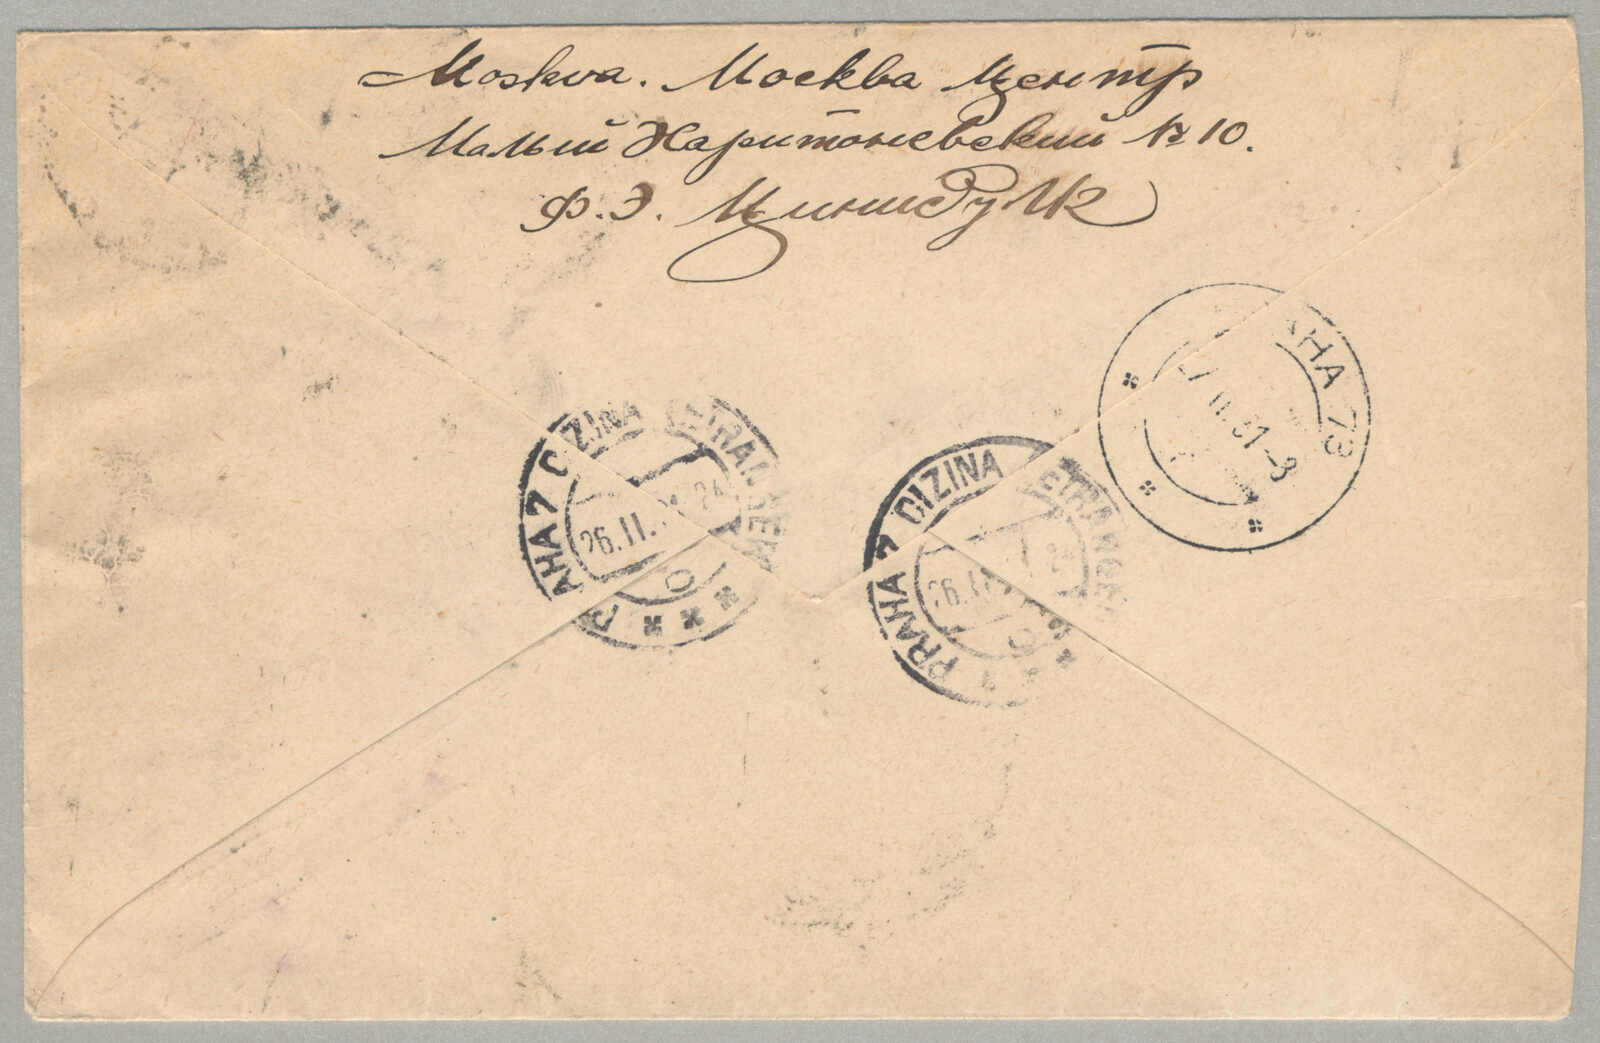 Moskva. Москва Центр
Малый Харитоньевский № 10.
Ф. Э.
PRAHA 7 CIZINA ETRANGER
26.II. 24
PRAHA 7 CIZINA ETRANGER
26.II. 24
HA 73
II.31-8